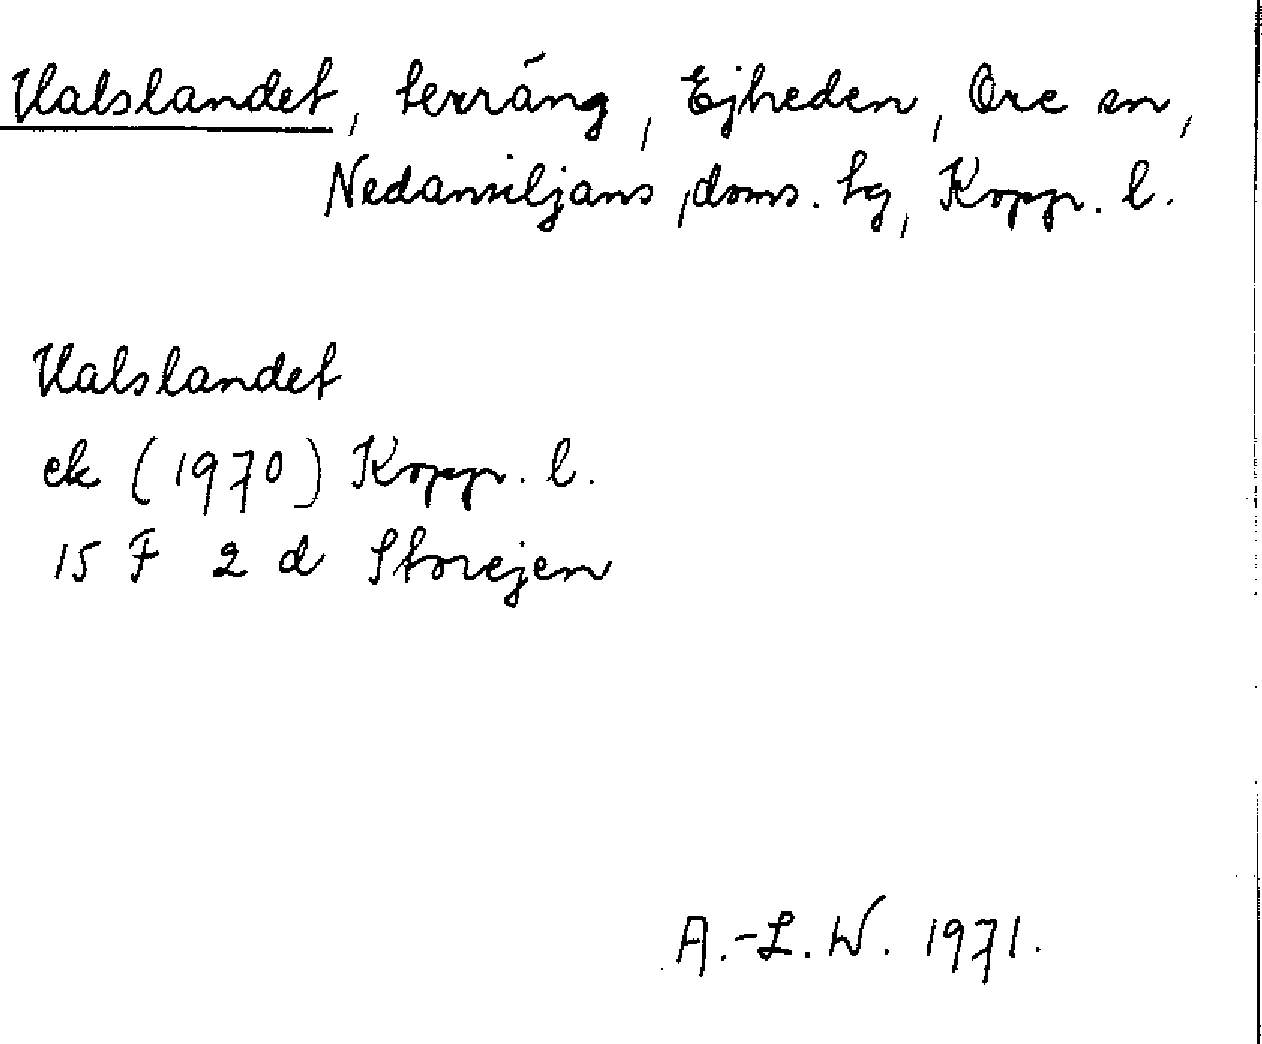 Valslandet, terräng, Ejheden, Ore sn,
Nedansiljans doms. tg, Kopp. l.
Valslandet
ek (1970) Kopp. l.
15 F 2 d Storejen
A.-L. W. 1971.